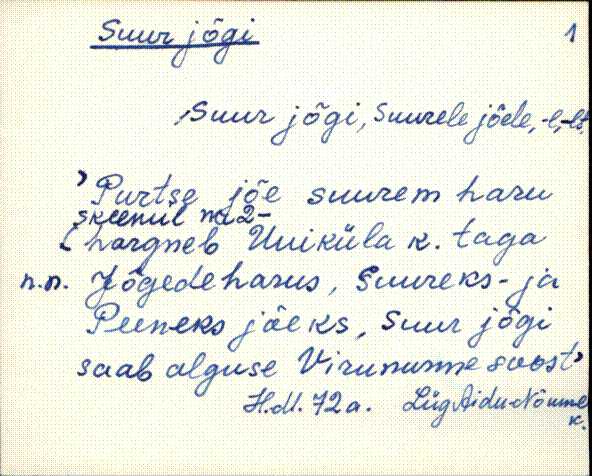 Suur jõgi 1
Suur jõgi, Suurele jõele, -l, -lt
Purtse jõe suurem haru
skeenil nr 2-
hargneb Uniküla k. taga
n.n. Jõgedeharus, Suureks- ja
Peeneks jõeks, Suur jõgi
saab alguse Virunurme soost
H.M. 72a. Lüg Aidu-Nõmme
k.